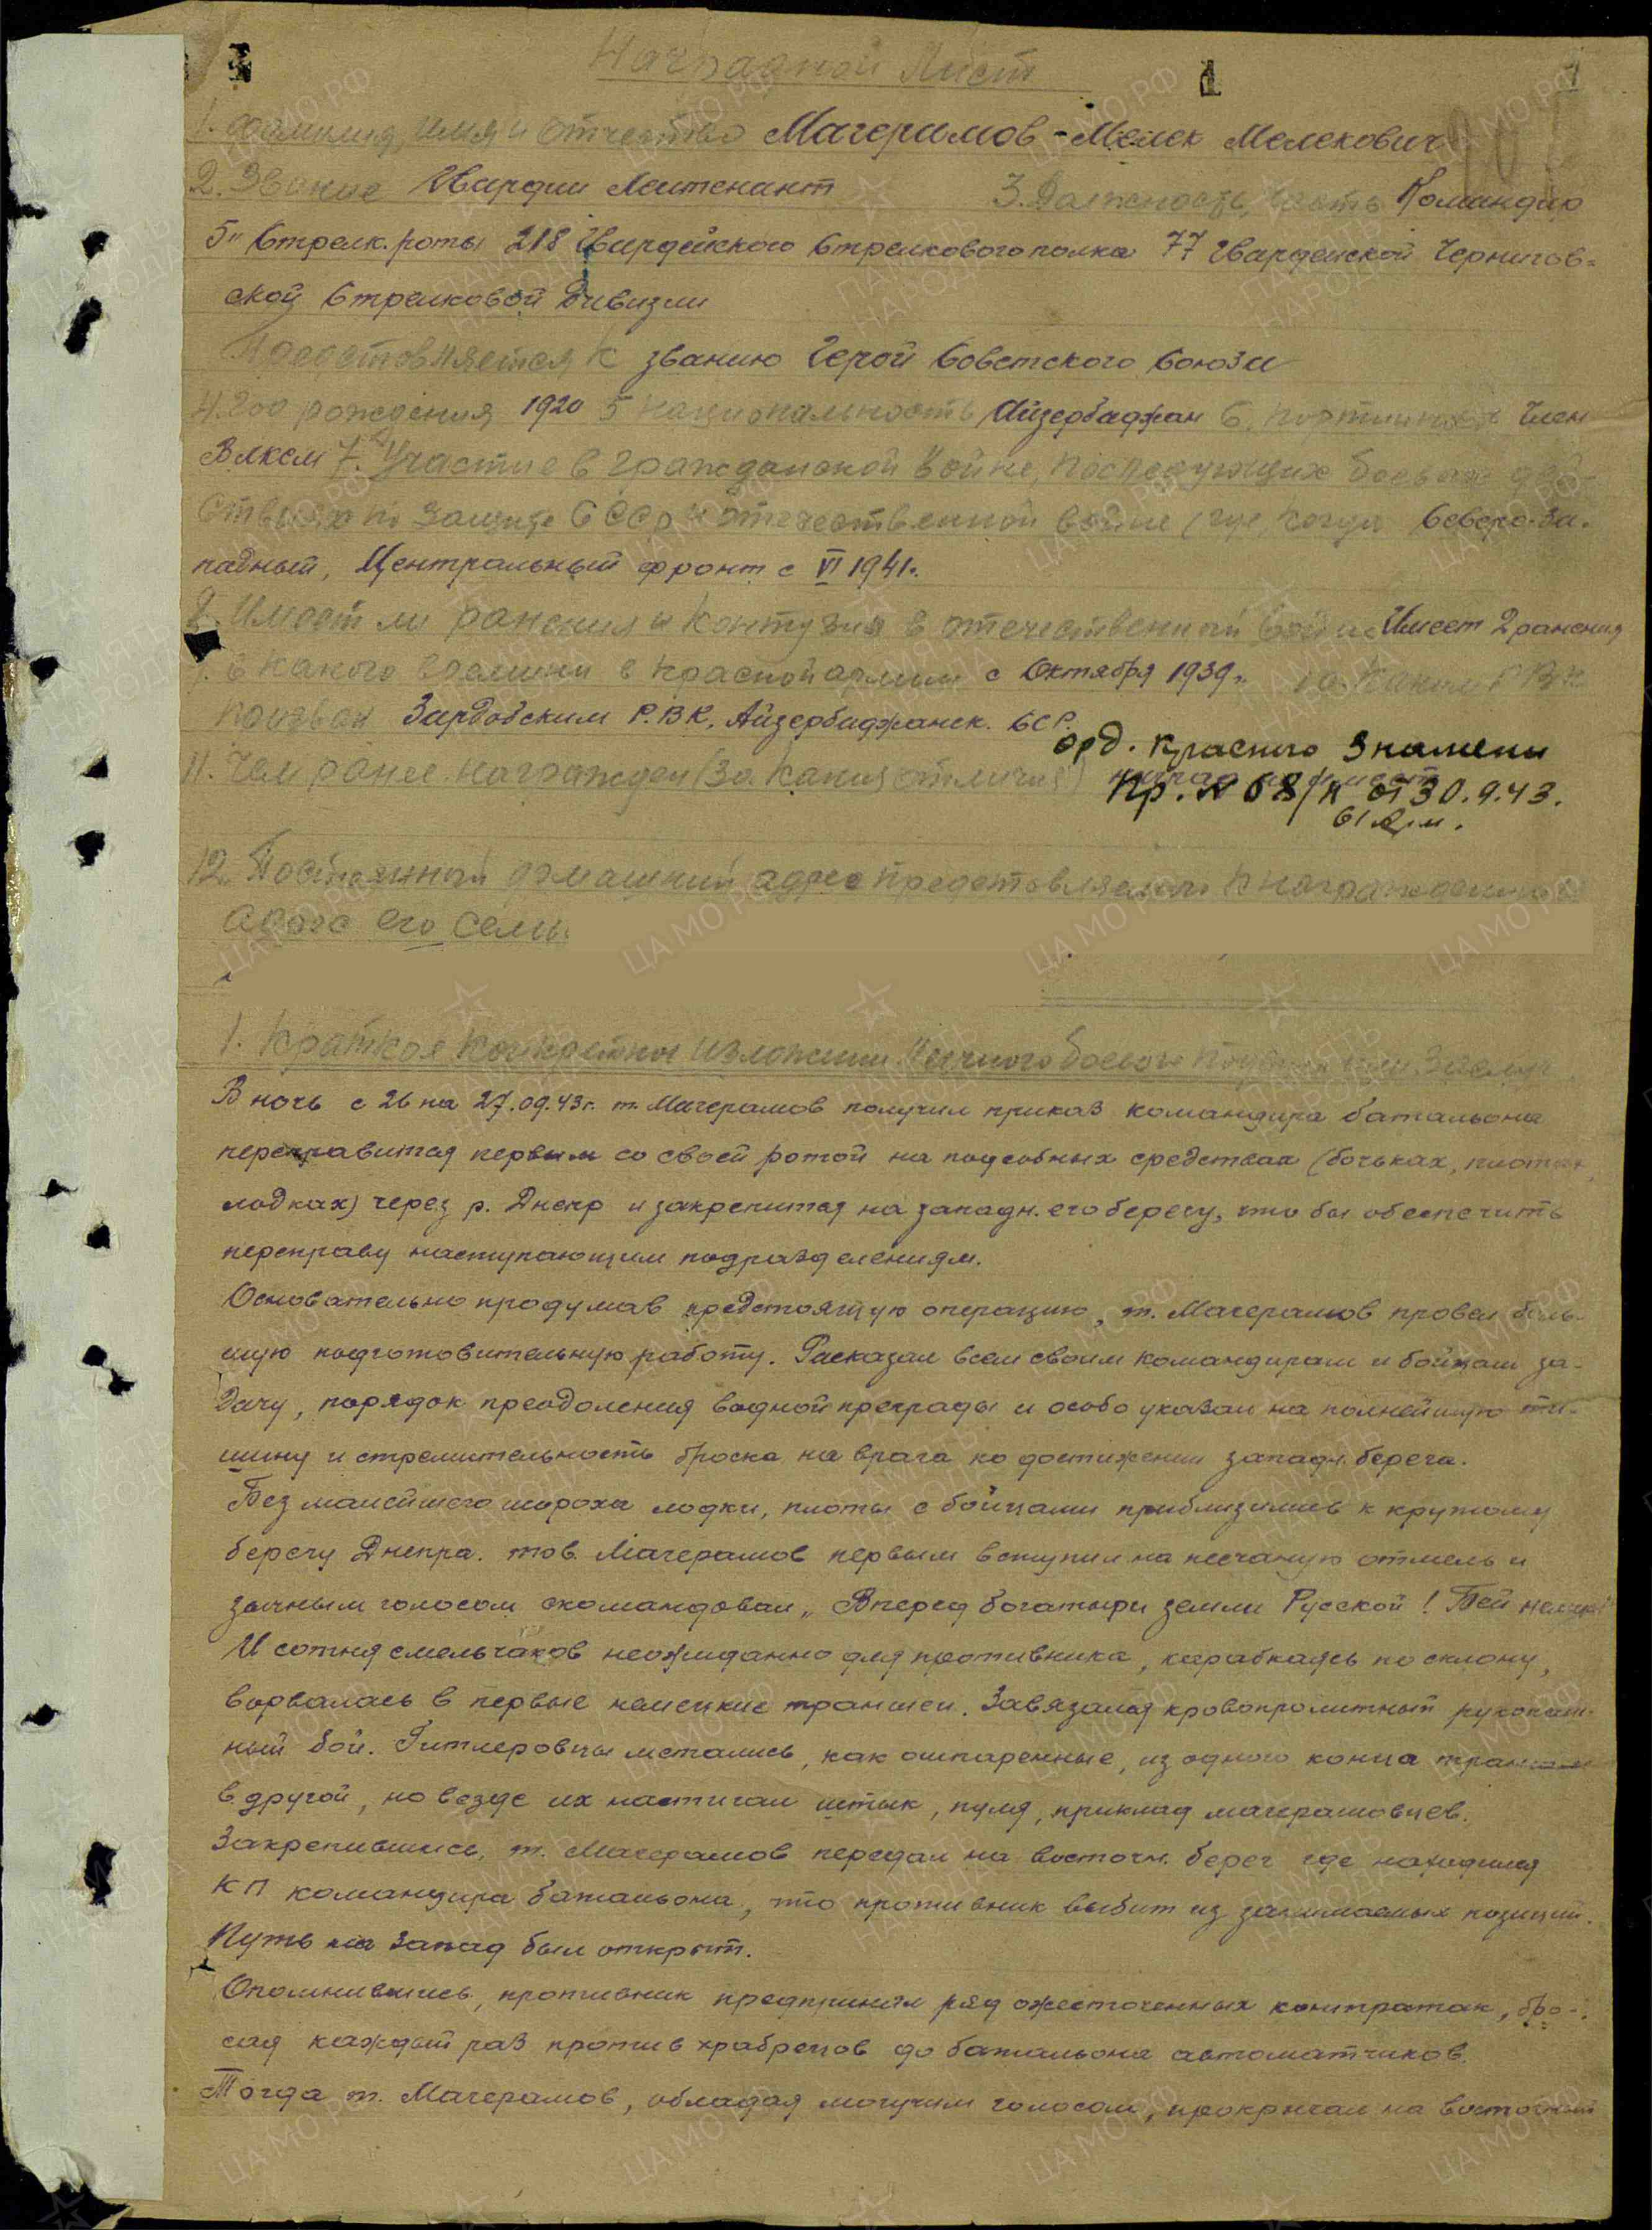 Наградной Лист
1. Фамилия, имя и отчество Магерамов - Мелек Мелекович
2. Звание Гвардии Лейтенант 3. Должность, часть Командир
5" Стрелк. роты 218 Гвардейского Стрелкового полка 77 Гвардейской Чернигов-
ской Стрелковой Дивизии
Представляется к званию Герой Советского Союза
4. год рождения 1920 5 национальность Айзербаджан 6. партийность Член
ВЛКСМ 7. Участие в гражданской войне, последующих боевых дей-
ствиях по защите СССР и отечественной войне (где, когда Северо-За-
падный, Центральный фронт с VI 1941г.
8. Имеет ли ранения и контузия в отечественной войне Имеет 2 ранения
9. С какого времени в красной армии с Октября 1939г. 10. Каким РВК
призван Зардобским Р.В.К. Айзербаджанск. ССР.
орд. красного Знамени
11. Чем ранее награжден (за какия отличия)
Пр. № 68/н от 30.9.43.
61 Арм.
12. Постоянный домашний адрес представляемого к награждению и
адрес его семьи
1. Краткое конкретное изложение личного боевого подвига или заслуг
В ночь с 26 на 27.09.43г. т. Магерамов получил приказ командира батальона
переправится первым со своей ротой на подсобных средствах (бочках, плотах,
лодках) через р. Днепр и закрепится на западн. его берегу, что бы обеспечить
переправу наступающим подразделениям.
Основательно продумав предстоящую операцию, т. Магерамов провел боль-
шую подготовительную работу. Расказал всем своим командирам и бойцам за-
дачу, порядок преодоления водной преграды и особо указал на полнейшую ти-
шину и стремительность броска на врага по достижении западн. берега.
Без малейшего шороха лодки, плоты с бойцами приблизились к крутому
берегу Днепра. тов. Магерамов первым вступил на песчаную отмель и
зычным голосом скомандовал „Вперед богатыри земли Русской! Бей немцев!
И сотня смельчаков неожиданно для противника, карабкаясь по склону,
ворвалась в первые немецкие траншеи. Завязался кровопролитный рукопаш-
ный бой. Гитлеровцы метались, как ошпаренные, из одного конца траншеи
в другой, но везде их настигали штык, пуля, приклад магерамовцев.
Закрепившись, т. Магерамов передал на восточн. берег где находился
КП командира батальона, что противник выбит из занимаемых позиций.
Путь на Запад был открыт.
Опомнившись, противник предпринял ряд ожесточенных контратак, бро-
сая каждый раз против храбрецов до батальона автоматчиков.
Тогда т. Магерамов, обладая могучим голосом, прокричал на восточный